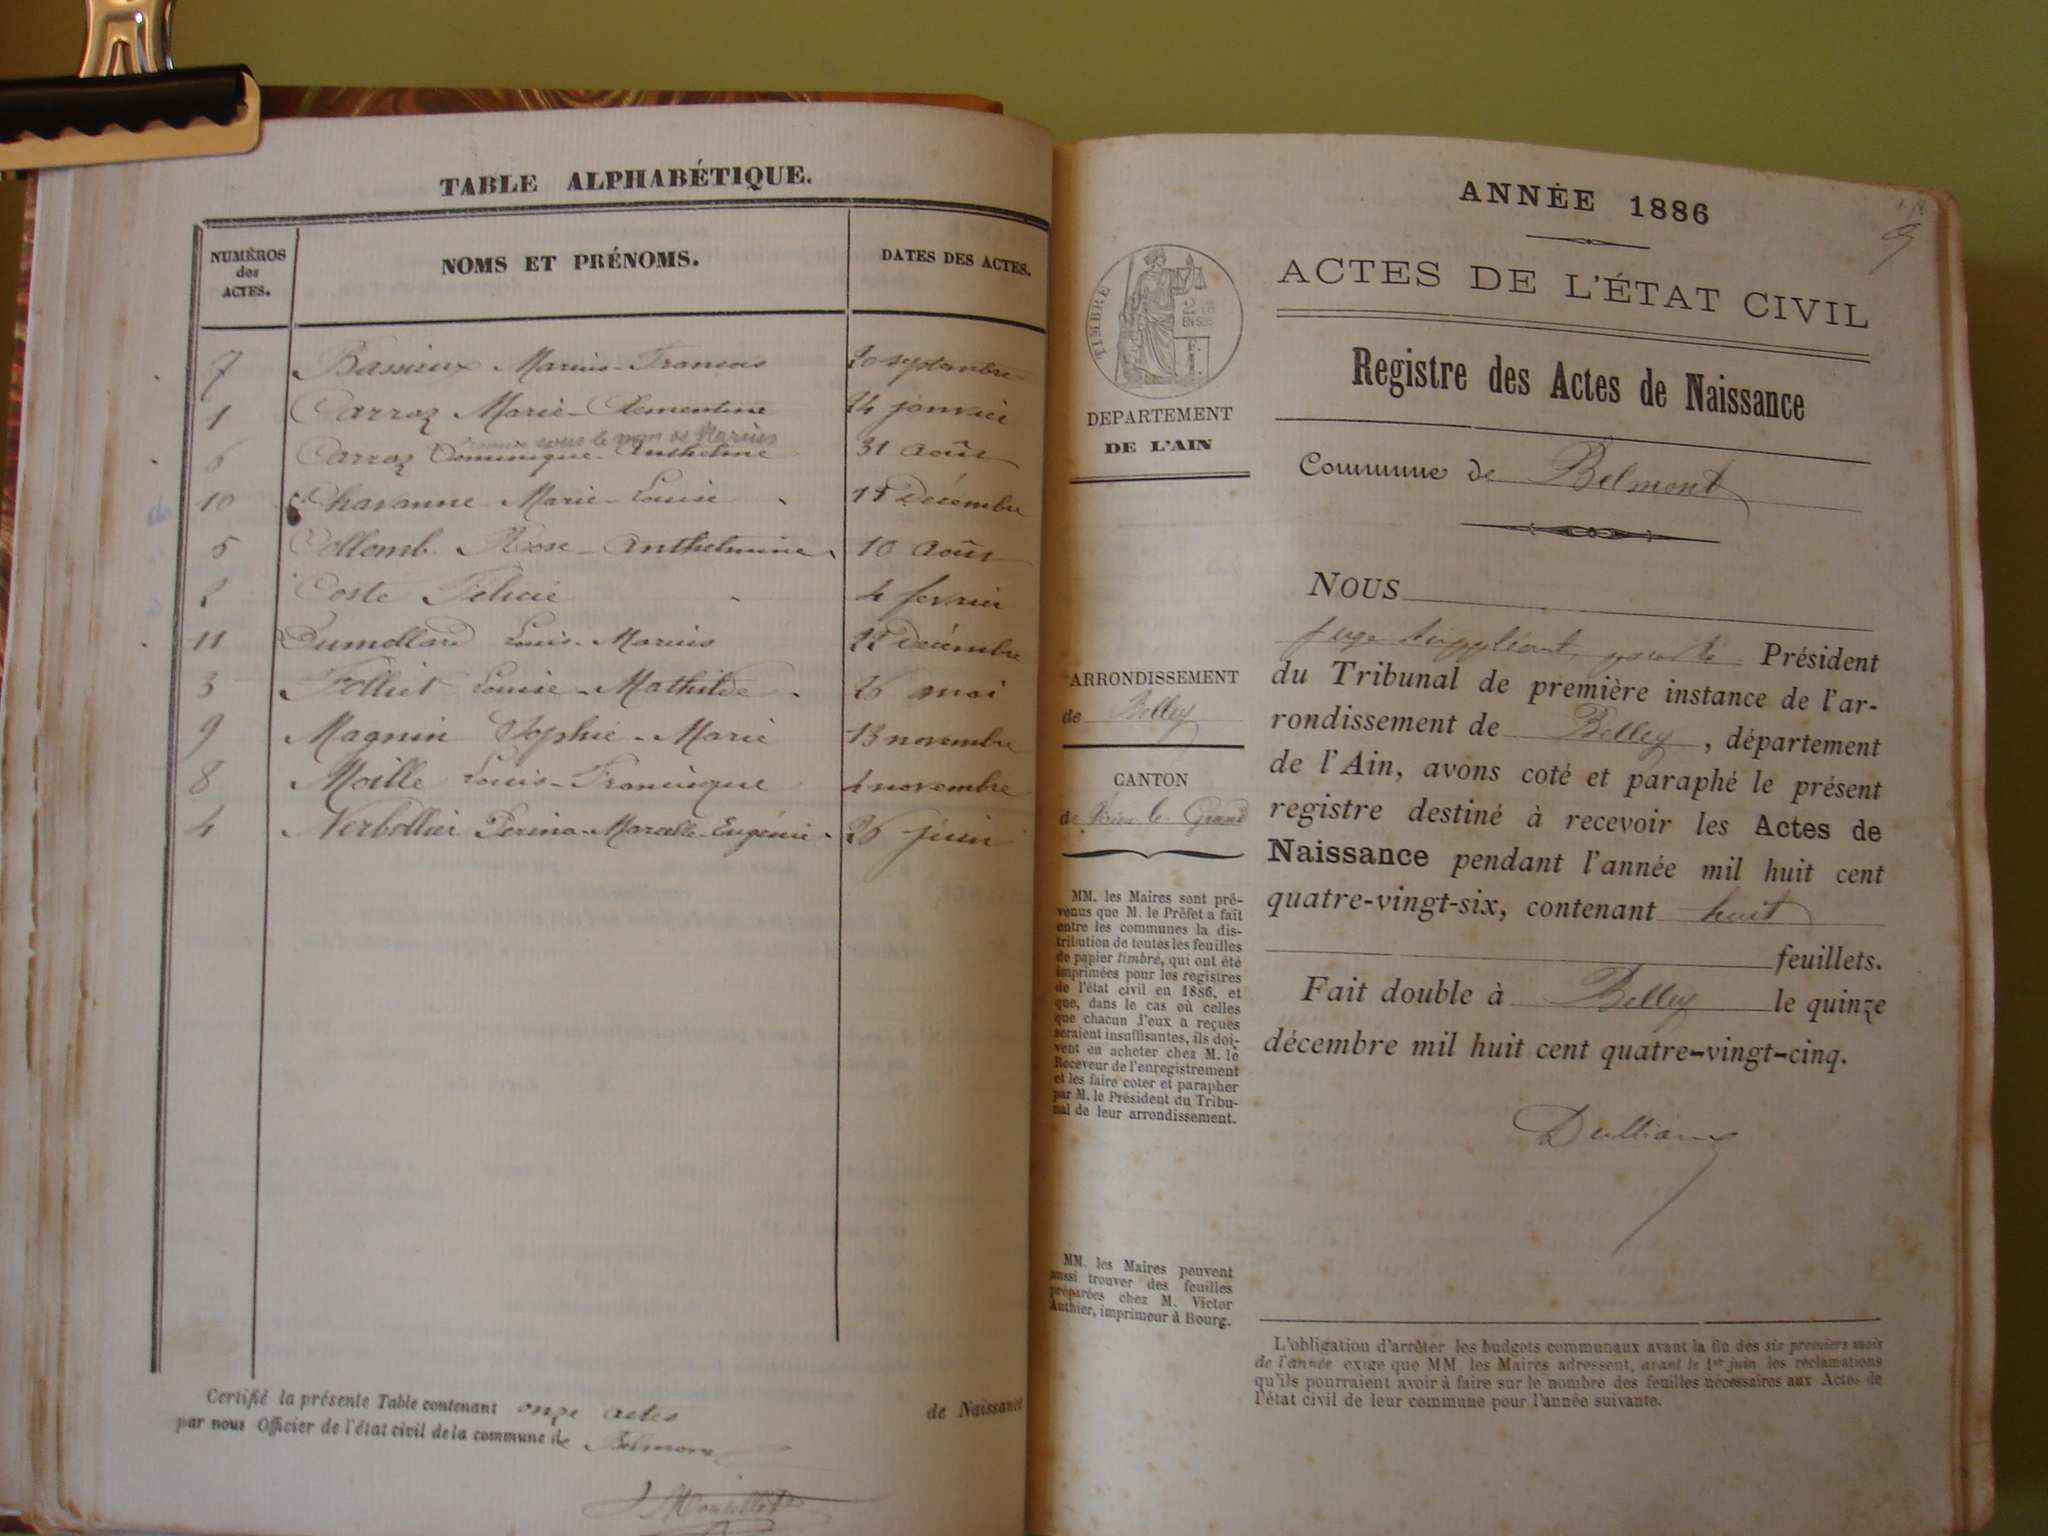 TABLE ALPHABÉTIQUE.
NUMÉROS
des
ACTES.
NOMS ET PRÉNOMS.
DATES DES ACTES.
7 Bassieux Marius-Francois 20 septembre
1 Carraz Marie-Clementine 24 janvier
sous le nom de Marius
6 Carraz Dominique-Anthelme 31 Août
10 Chavanne Marie-Louise Décembre
5 Collomb Rose-Anthelmine 10 Août
2 Coste Félicie 4 fevrier
11 Dumollard Louis-Marius Décembre
3 Folliet Louise-Mathilde 26 mai
9 Magnin Sophie-Marie 13 novembre
8 Moille Louis-Francisque 4 novembre
4 Nerbollier Perina-Marcelle-Eugénie 26 juin
Certifié la présente Table contenant onze actes de Naissance
par nous Officier de l'état civil de la commune de Belmont
ANNÉE 1886
ACTES DE L'ÉTAT CIVIL
TIMBRE
EN SUS
DEPARTEMENT
DE L'AIN
Registre des Actes de Naissance
Commune de Belmont
NOUS
juge suppléant, Président
du Tribunal de première instance de l'ar-
rondissement de Belley, département
de l'Ain, avons coté et paraphé le présent
registre destiné à recevoir les Actes de
Naissance pendant l'année mil huit cent
quatre-vingt-six, contenant huit
feuillets.
Fait double à Belley le quinze
décembre mil huit cent quatre-vingt-cinq.
Dullian
ARRONDISSEMENT
de Belley
CANTON
de Virieu-le-Grand
MM. les Maires sont pré-
venus que M. le Préfet a fait
entre les communes la dis-
tribution de toutes les feuilles
de papier timbré, qui ont été
imprimées pour les registres
de l'état civil en 1886, et
que, dans le cas où celles
que chacun d'eux a reçues
seraient insuffisantes, ils doi-
vent en acheter chez M. le
Receveur de l'enregistrement
et les faire coter et parapher
par M. le Président du Tribu-
nal de leur arrondissement.
MM. les Maires peuvent
aussi trouver des feuilles
préparées chez M. Victor
Authier, imprimeur à Bourg.
L'obligation d'arrêter les budgets communaux avant la fin des six premiers mois
de l'année exige que MM. les Maires adressent, avant le 1er juin les réclamations
qu'ils pourraient avoir à faire sur le nombre des feuilles nécessaires aux Actes de
l'état civil de leur commune pour l'année suivante.